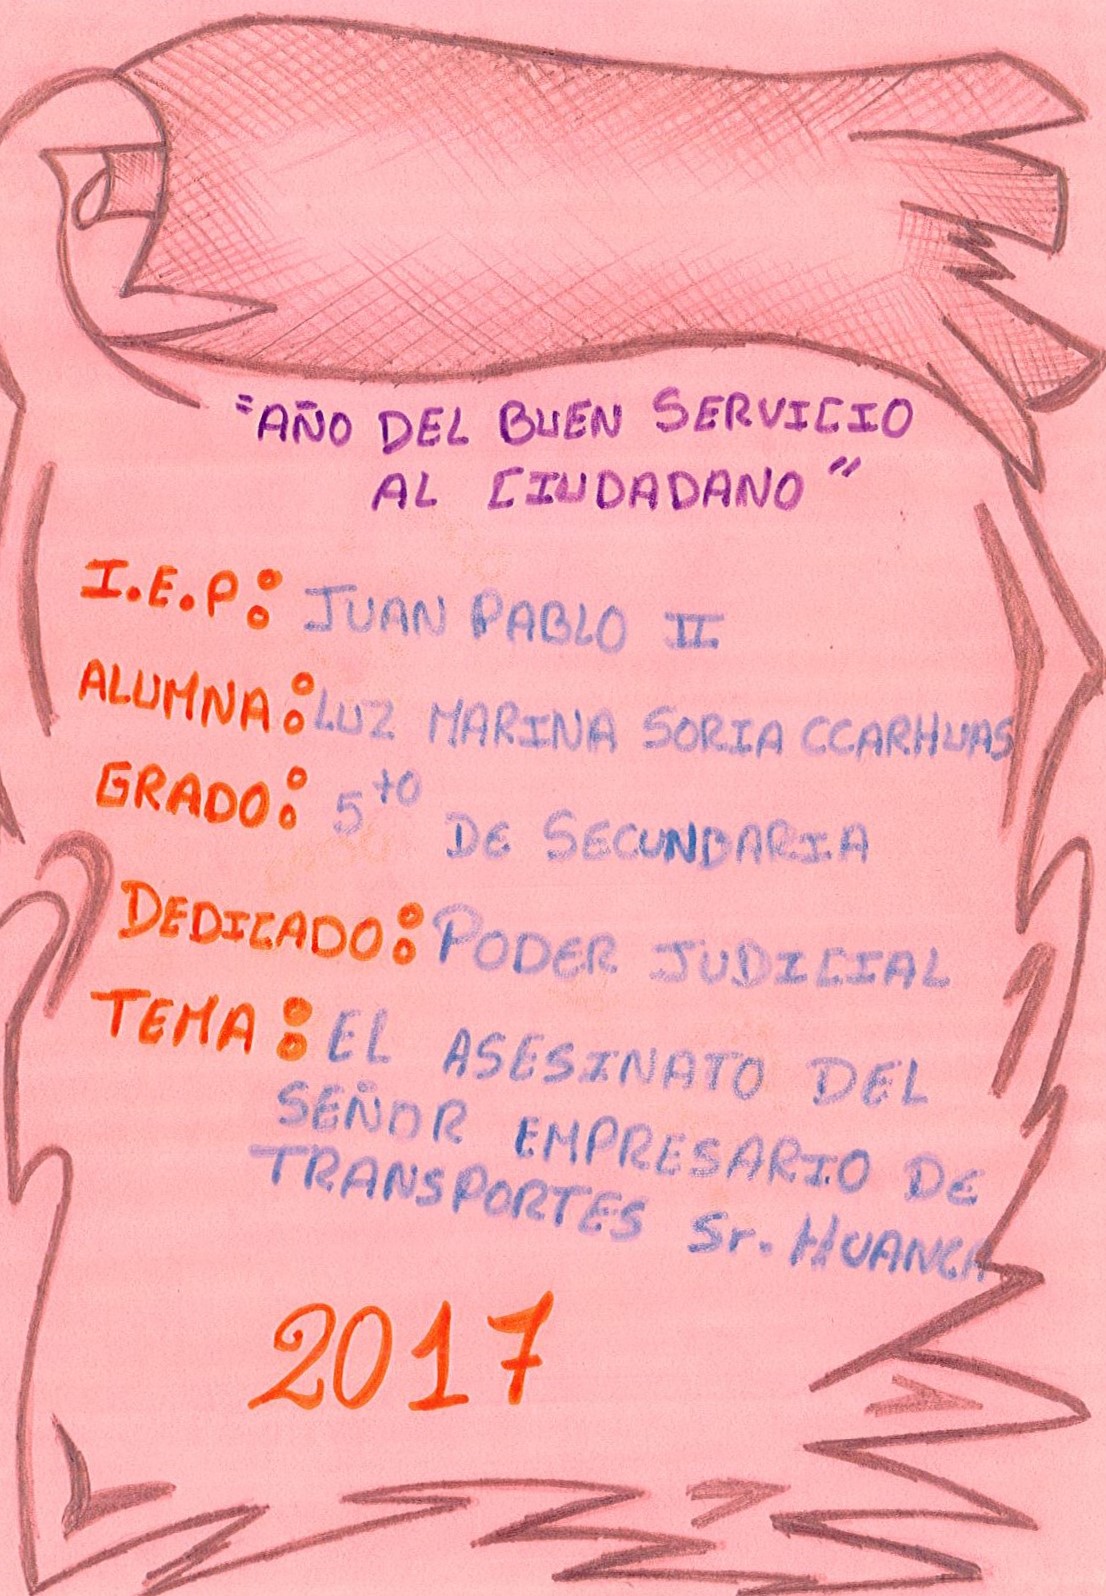 "AÑO DEL BUEN SERVICIO
AL CIUDADANO"
I.E.P: JUAN PABLO II
ALUMNA: LUZ MARINA SORIA CCARHUAS
GRADO: 5to DE SECUNDARIA
DEDICADO: PODER JUDICIAL
TEMA: EL ASESINATO DEL
SEÑOR EMPRESARIO DE
TRANSPORTES Sr. HUANCA
2017